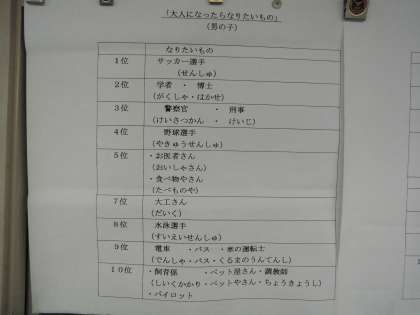 「大人になったらなりたいもの」
(男の子)
なりたいもの
1位 サッカー選手
(せんしゅ)
2位 学者 ・ 博士
(がくしゃ・はかせ)
3位 警察官 ・ 刑事
(けいさつかん ・ けいじ)
4位 野球選手
(やきゅうせんしゅ)
5位 ・お医者さん
(おいしゃさん)
・食べ物やさん
(たべものや)
7位 大工さん
(だいく)
8位 水泳選手
(すいえいせんしゅ)
9位 電車 ・バス ・車の運転士
(でんしゃ・バス・くるまのうんてんし)
10位 ・飼育係 ・ペット屋さん・調教師
(しいくかかり・ペットやさん・ちょうきょうし)
・パイロット